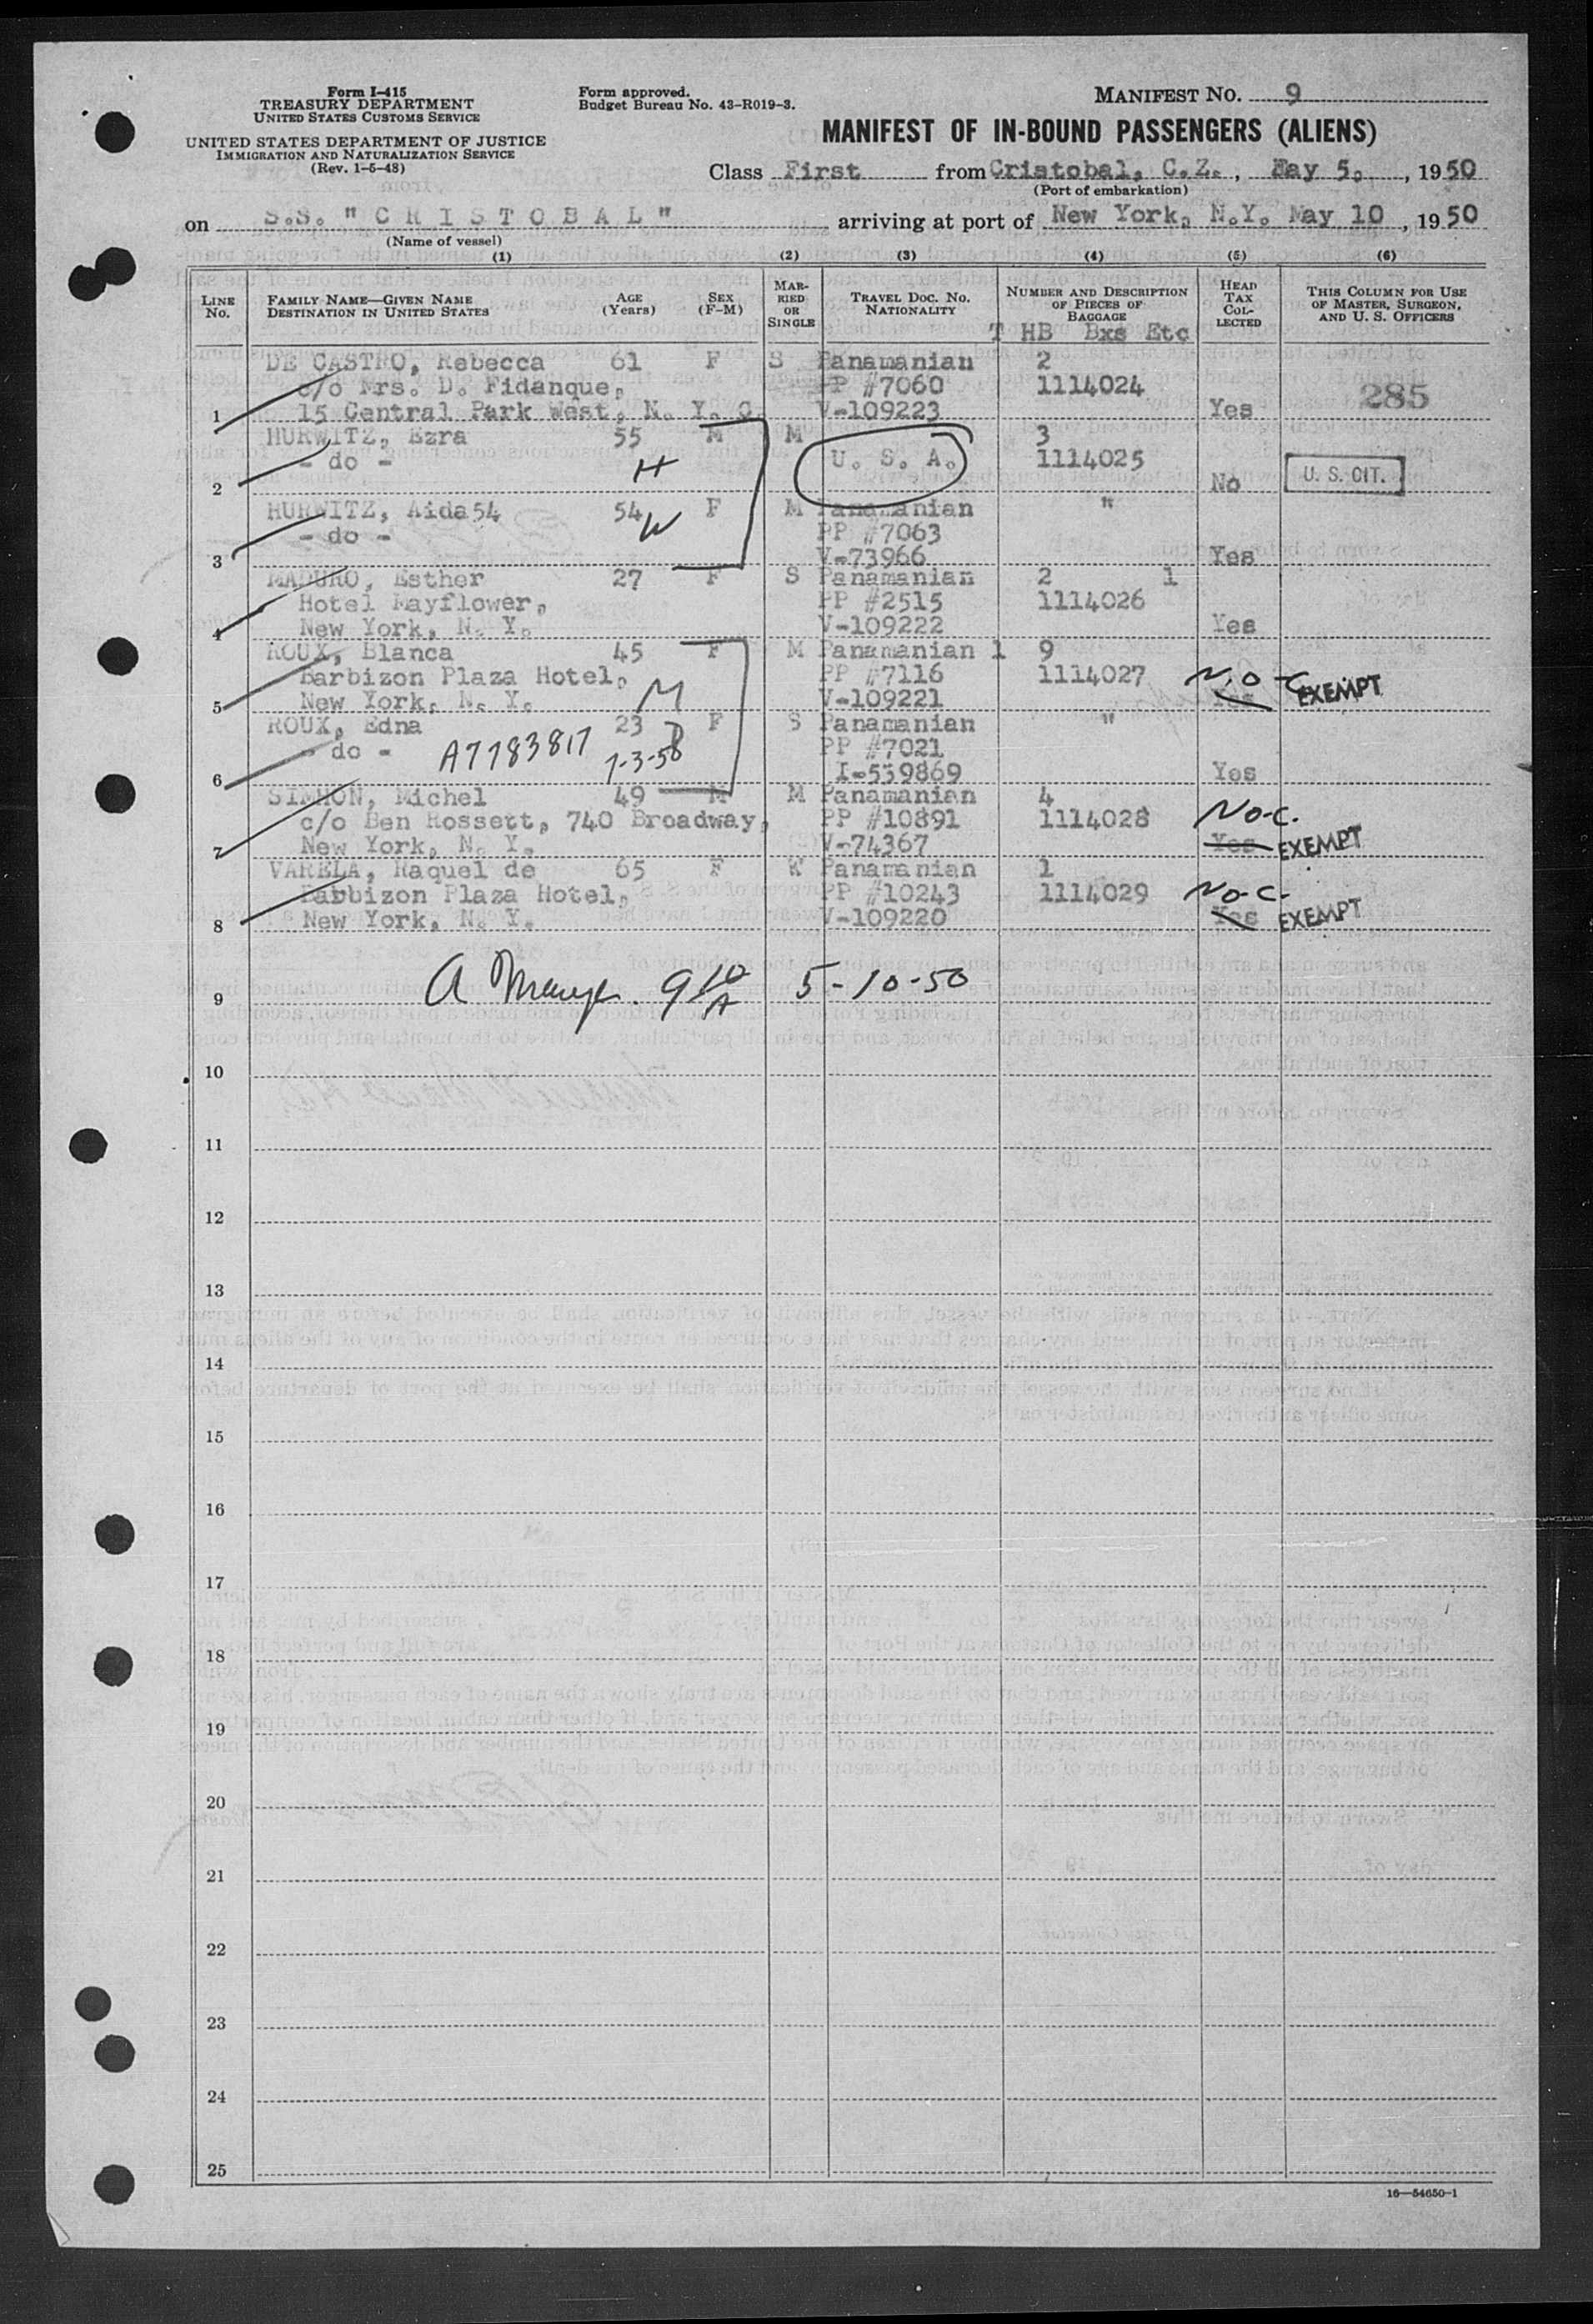 Form I-415
TREASURY DEPARTMENT
UNITED STATES CUSTOMS SERVICE
UNITED STATES DEPARTMENT OF JUSTICE
IMMIGRATION AND NATURALIZATION SERVICE
(Rev. 1-5-48)
Form approved.
Budget Bureau No. 43-R019-3.
MANIFEST NO. 9
MANIFEST OF IN-BOUND PASSENGERS (ALIENS)
Class First from Cristobal, C.Z., May 5, 1950
(Port of embarkation)
on S.S. "CRISTOBAL" arriving at port of New York, N.Y. May 10, 1950
(Name of vessel)
(1) (2) (3) (4) (5) (6)
LINE NO.
FAMILY NAME—GIVEN NAME
DESTINATION IN UNITED STATES
AGE (Years)
SEX (F-M)
MARRIED OR SINGLE
TRAVEL DOC. NO. NATIONALITY
NUMBER AND DESCRIPTION OF PIECES OF BAGGAGE
T HB Bxs Etc
HEAD TAX COLLECTED
THIS COLUMN FOR USE OF MASTER, SURGEON, AND U. S. OFFICERS
DE CASTRO, Rebecca 61 F S Panamanian 2
c/o Mrs. D. Fidanque, PP #7060 1114024 285
1 15 Central Park West, N. Y. C. V-109223 Yes
HURWITZ, Ezra 55 M M 3
- do - H U. S. A. 1114025 U. S. CIT.
2 No
HURWITZ, Aida54 54 F M Panamanian "
- do - W PP #7063
3 V-73966 Yes
MADURO, Esther 27 F S Panamanian 2 1
Hotel Mayflower, PP #2515 1114026
4 New York, N. Y. V-109222 Yes
ROUX, Blanca 45 F M Panamanian 1 9
Barbizon Plaza Hotel, PP #7116 1114027 No-C
5 New York, N. Y. M V-109221 Yes EXEMPT
ROUX, Edna 23 F S Panamanian "
- do - A7783817 D PP #7021
6 1-3-58 I-539869 Yes
SIMHON, Michel 49 M M Panamanian 4
c/o Ben Rossett, 740 Broadway, PP #10891 1114028 No-C.
7 New York, N. Y. V-74367 Yes EXEMPT
VARELA, Raquel de 65 F W Panamanian 1
Barbizon Plaza Hotel, PP #10243 1114029 No-C-
8 New York, N. Y. V-109220 Yes EXEMPT
9 A 9 10/A 5-10-50
10
11
12
13
14
15
16
17
18
19
20
21
22
23
24
25
16—54650-1